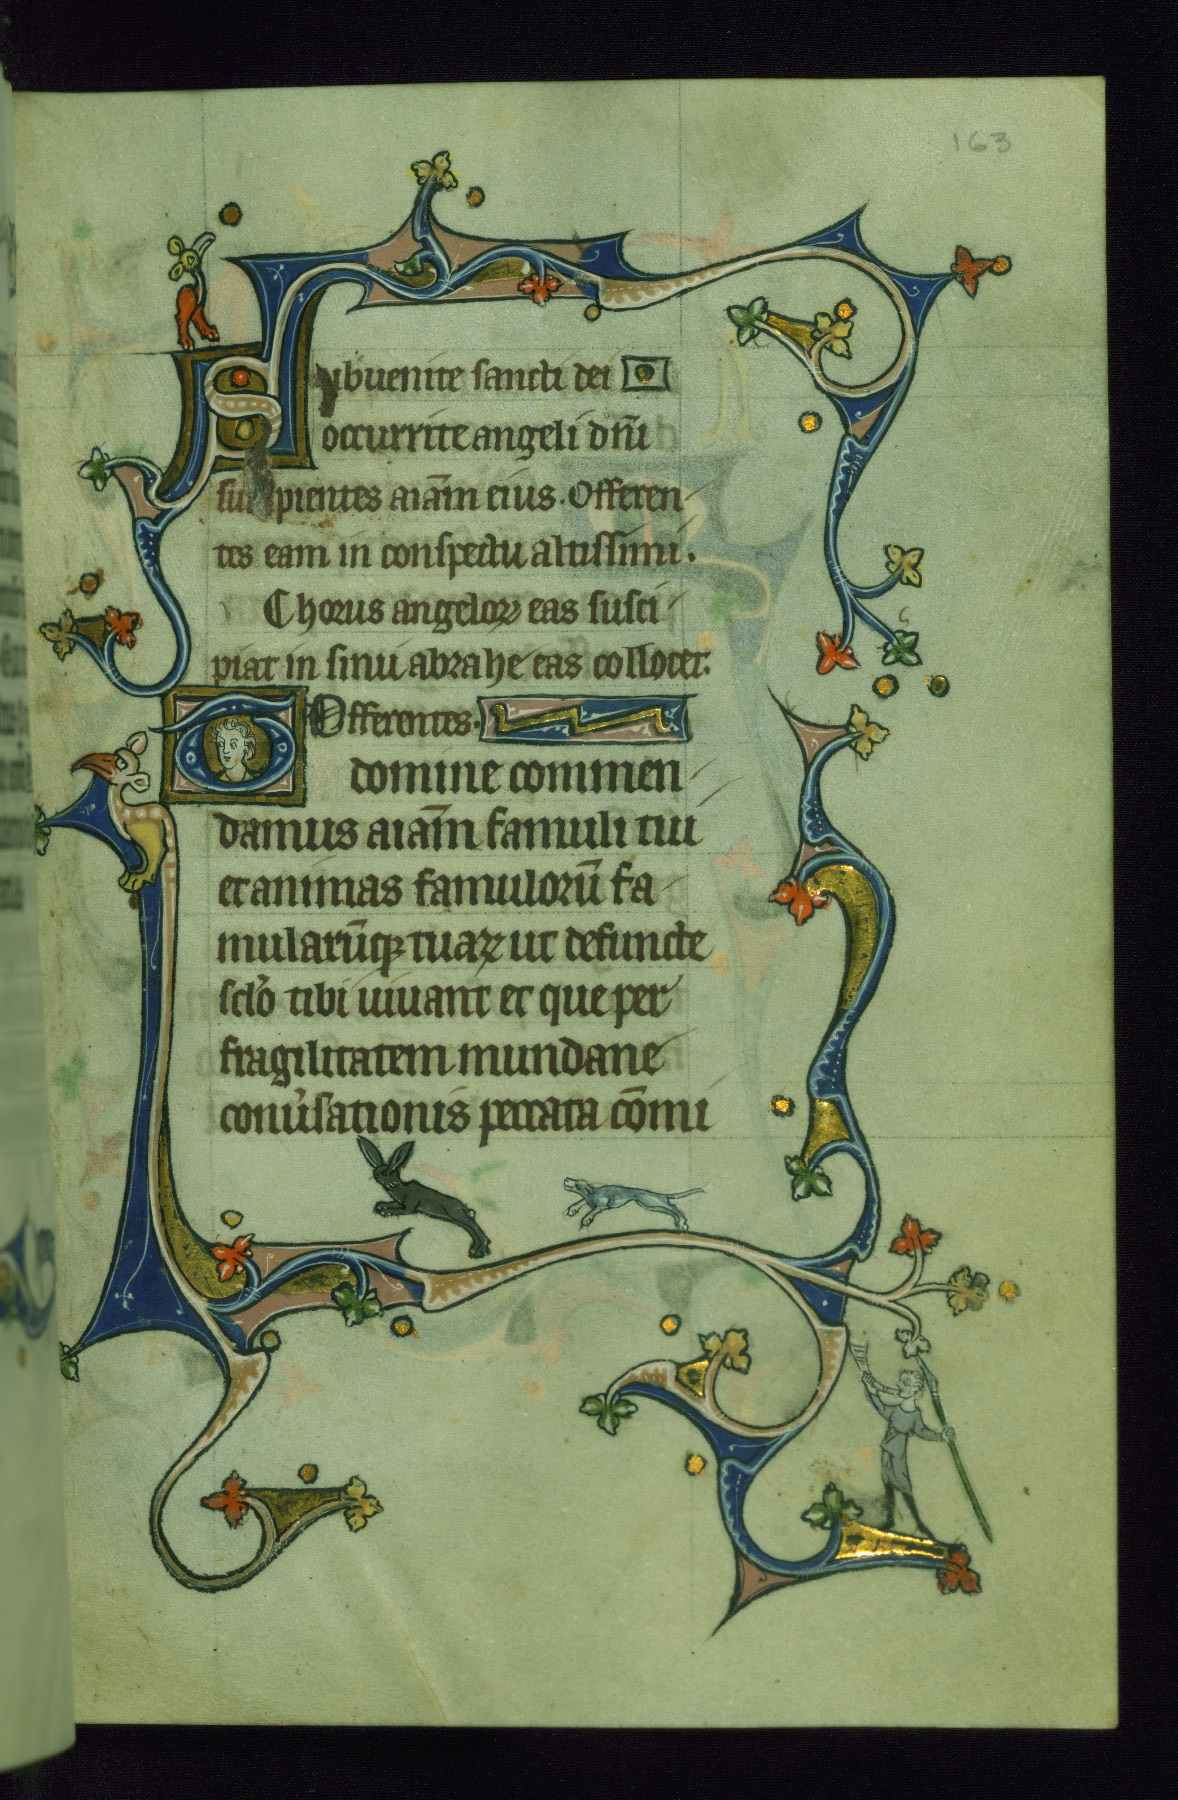 163
Subuenite sancti dei
occurrite angeli dñi
suscipientes aiām eius. Offeren
tes eam in conspectu altissimi.
Chorus angeloꝝ eas susci
piat in sinu abrahe eas collocet.
Offerentes.
Tibi domine commen
damus aiām famuli tui
et animas famulorū fa
mularūqꝫ tuaꝝ ut defuncte
sclo tibi uiuant et que per
fragilitatem mundane
conusationis peccata cōmi